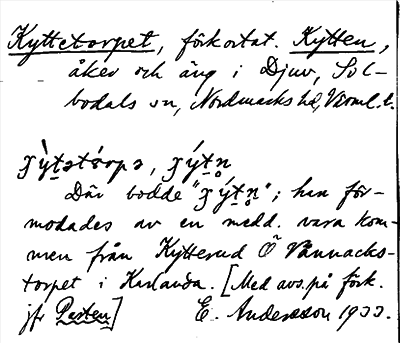 Kyttetorpet, förkortat. Kytten,
åker och äng i Djuv, Sil-
bodals sn, Nordmarks hd, Värml. l.
Där bodde ; han för-
modades av en medd. vara kom-
men från Kytterud Ö Vännacks-
torpet i Karlanda. [Med avs. på förk.
jfr Pesten] E. Andersson 1933.